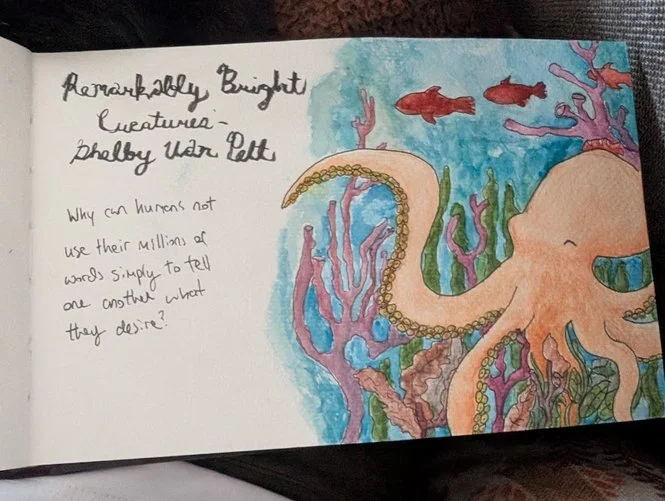 Remarkably Bright
Creatures -
Shelby Van Pelt
Why can humans not
use their millions of
words simply to tell
one another what
they desire?